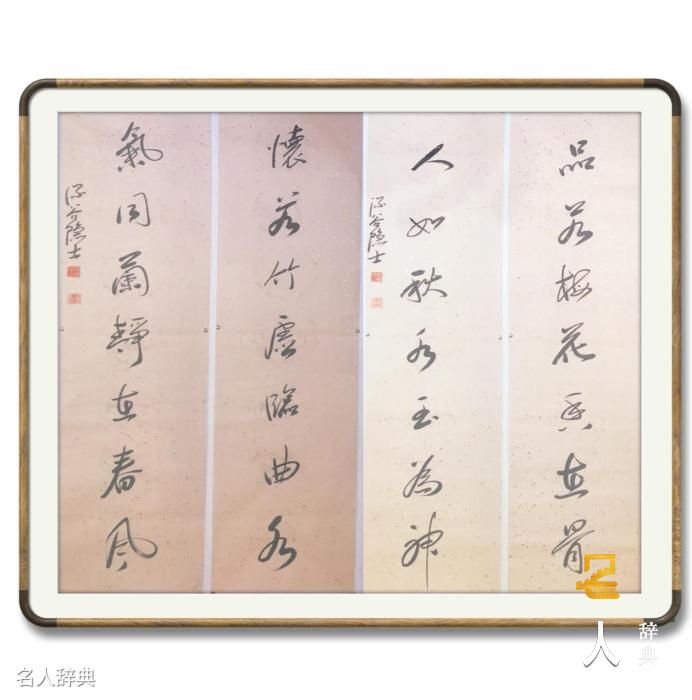 品若梅花香在骨
人如秋水玉為神
深谷隱士
懷若竹虛臨曲水
氣同蘭靜在春風
深谷隱士
名人辞典
名人辞典